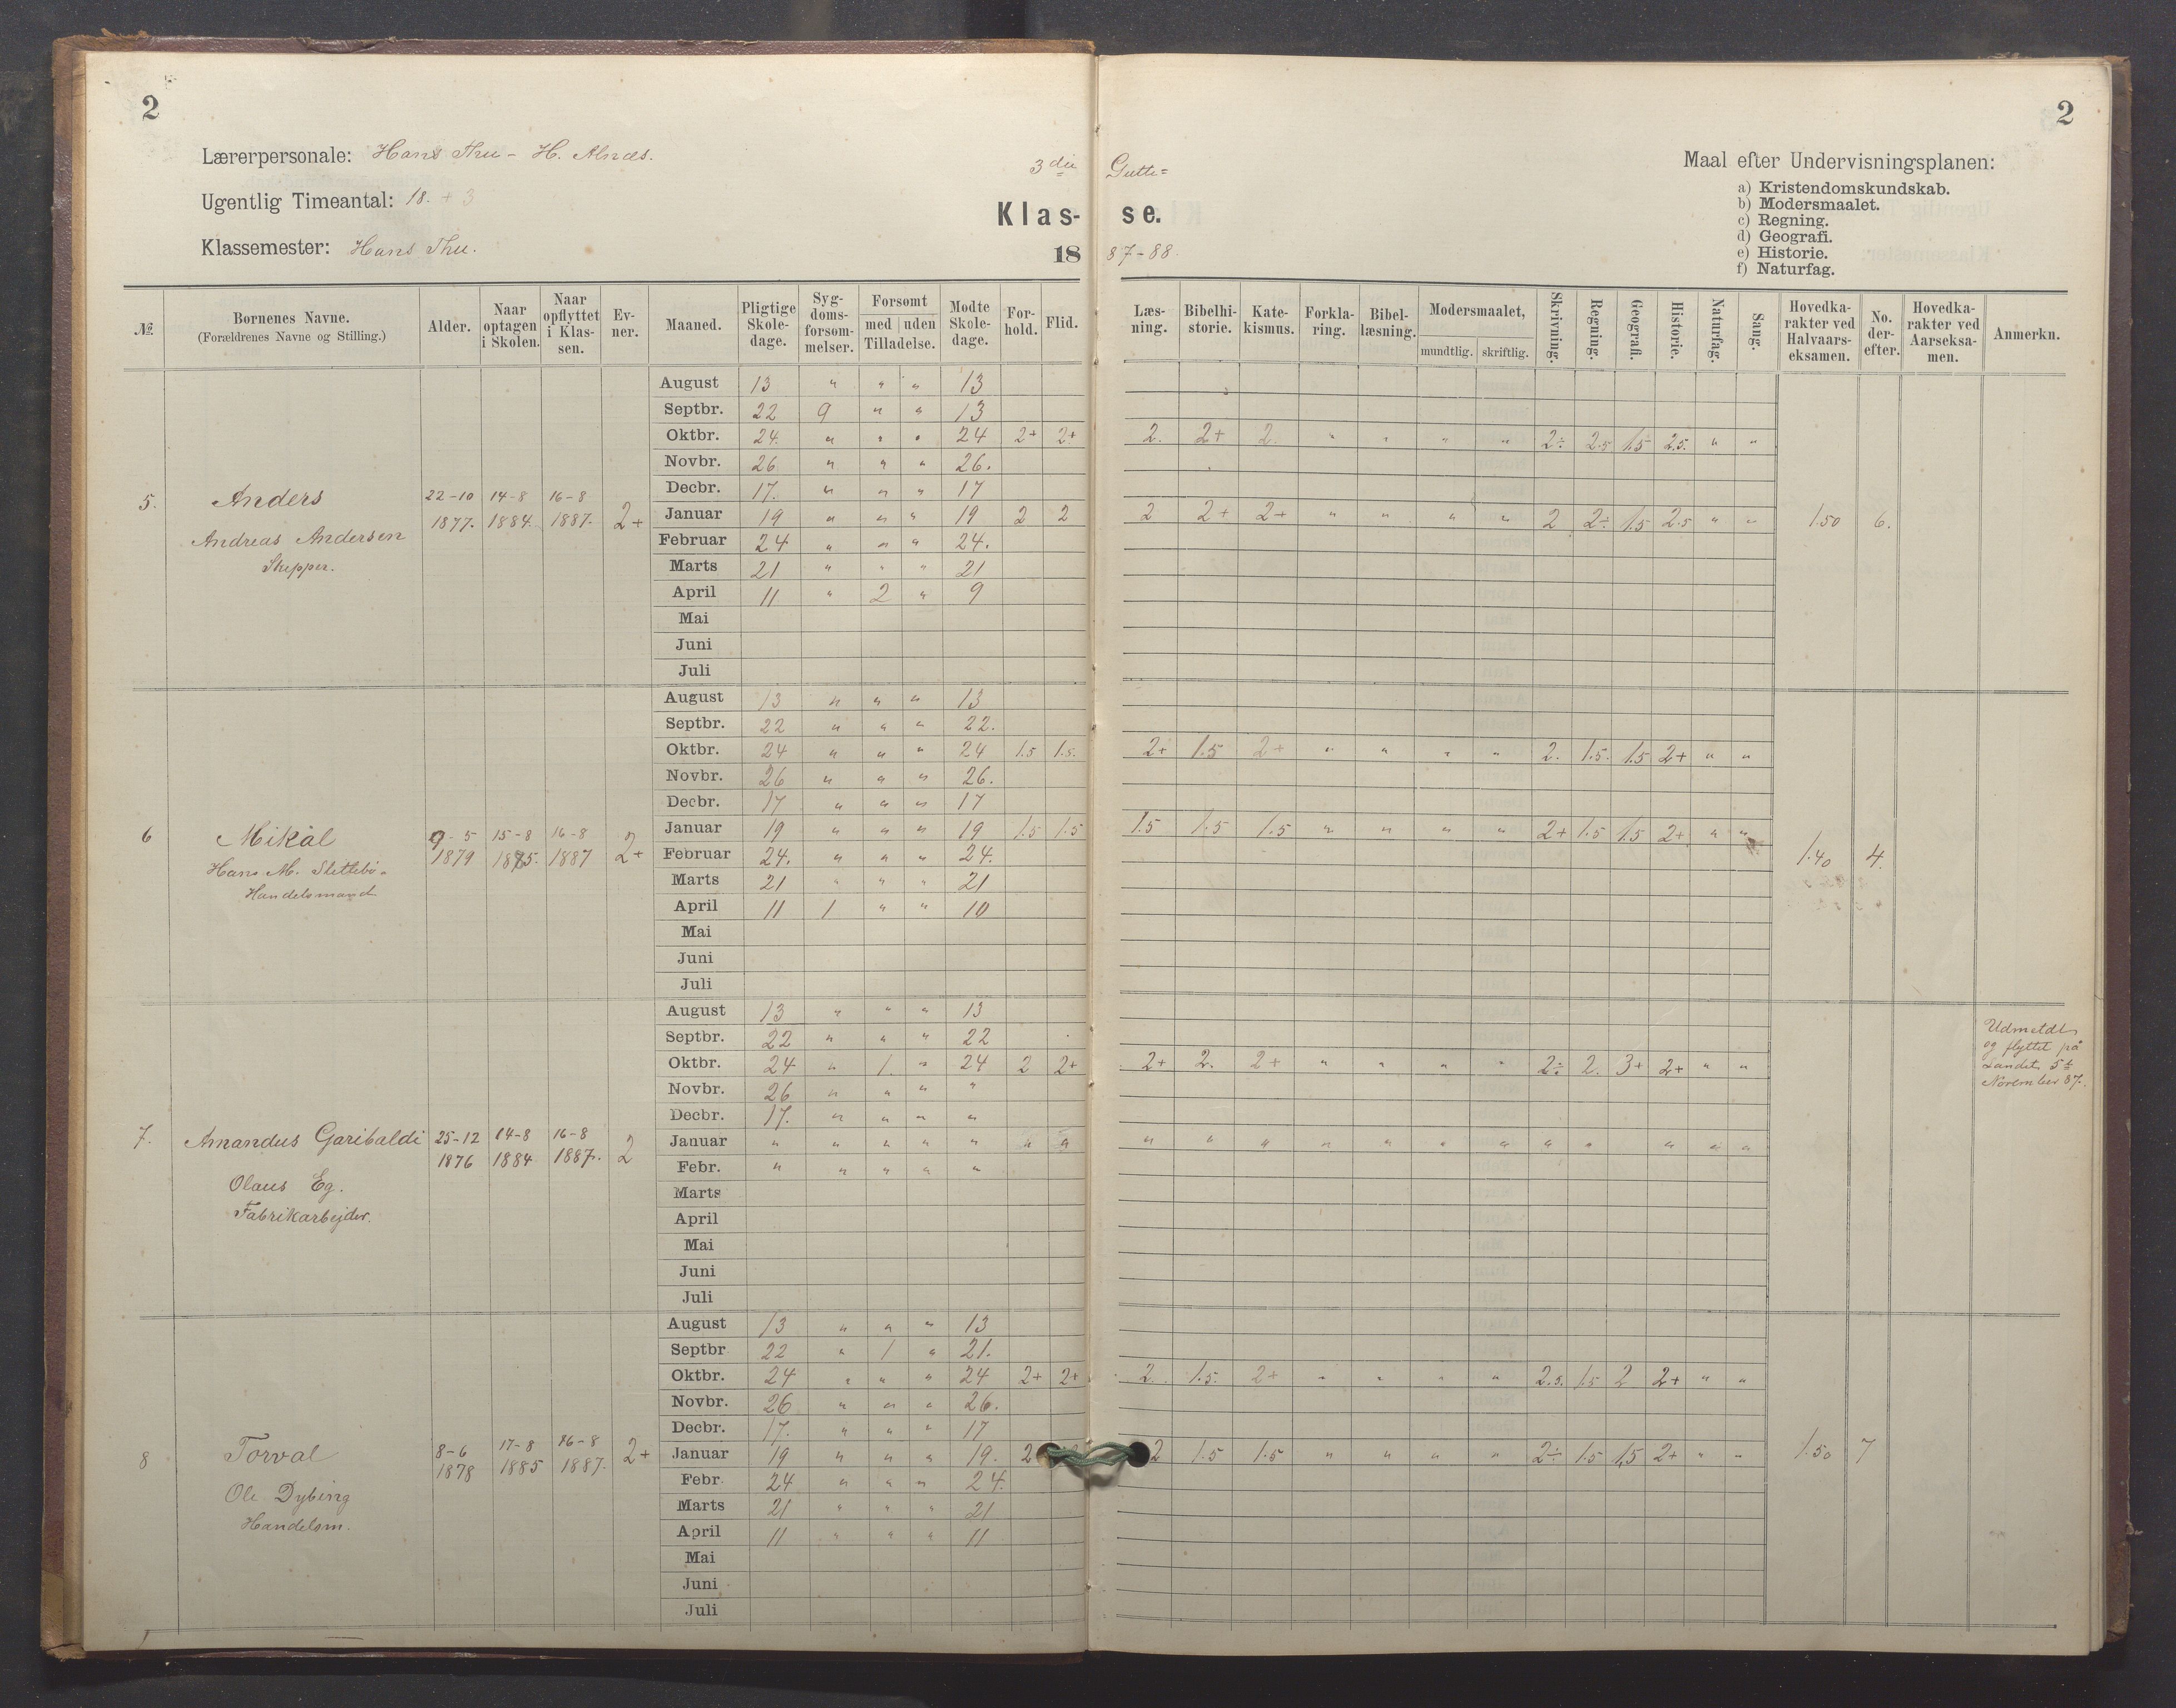 2
2
Lærerpersonale: Hans Thu - H. Alnæs.
Ugentlig Timeantal: 18. + 3
Klassemester: Hans Thu.
3die Gutte=
Klas-se.
1887-88.
Maal efter Undervisningsplanen:
a) Kristendomskundskab.
b) Modersmaalet.
c) Regning.
d) Geografi.
e) Historie.
f) Naturfag.
№. Børnenes Navne. (Forældrenes Navne og Stilling.) Alder. Naar optagen i Skolen. Naar opflyttet i Klassen. Ev-ner. Maaned. Pligtige Skole-dage. Syg-doms-forsøm-melser. Forsømt med | uden Tilladelse. Mødte Skole-dage. For-hold. Flid. Læs-ning. Bibelhi-storie. Kate-kismus. Forkla-ring. Bibel-læsning. Modersmaalet, mundtlig. skriftlig. Skrivning. Regning. Geografi. Historie. Naturfag. Sang. Hovedka-rakter ved Halvaars-eksamen. No. der-efter. Hovedka-rakter ved Aarseksa-men. Anmerkn.
5. Anders
Andreas Andersen
Skipper.
22-10 1877. 14-8 1884. 16-8 1887. 2+
August 13 " " " 13
Septbr. 22 9 " " 13
Oktbr. 24. " " " 24 2+ 2+ 2. 2+ 2. " " " " 2÷ 2.5 1.5 2.5. " "
Novbr. 26 " " " 26.
Decbr. 17. " " " 17
Januar 19 " " " 19 2 2 2 2+ 2+ " " " " 2 2÷ 1.5 2.5 " " 1.50 6.
Februar 24 " " " 24.
Marts 21 " " " 21
April 11 " 2 " 9
Mai
Juni
Juli
6 Mikal
Hans M. Slettebø.
Handelsmand
9-5 1879 15-8 1885. 16-8 1887 2+
August 13 " " " 13
Septbr. 22 " " " 22.
Oktbr. 24 " " " 24 1.5 1.5. 2+ 1.5 2+ " " " " 2. 1.5. 1.5 2+ " "
Novbr. 26 " " " 26.
Decbr. 17 " " " 17
Januar 19 " " " 19 1.5 1.5 1.5 1.5 1.5 " " " " 2+ 1.5 1.5 2+ " " 1.40 4.
Februar 24. " " " 24.
Marts 21 " " " 21
April 11 1 " " 10
Mai
Juni
Juli
7. Amandus Garibaldi
Olaus Eg.
Fabrikarbejder.
25-12 1876 14-8 1884 16-8 1887. 2
August 13 " " " 13
Septbr. 22 " " " 22
Oktbr. 24 " 1 " 24 2 2+ 2+ 2. 2+ " " " " 2÷ 2. 3+ 2+ " "
Novbr. 26 " " " "
Decbr. 17. " " " "
Januar " " " " " " " " " " " " " " " " " " "
Febr. " " " " "
Marts
April
Mai
Juni
Juli
Udmeldt
og flyttet på
Landet 5te
November 87.
8 Torval
Ole Dybing
Handelsm.
8-6 1878 17-8 1885 16-8 1887. 2+
August 13 " " " 13
Septbr 22 " 1 " 21.
Oktbr. 24 " " " 24 2+ 2+ 2. 1.5. 2+ " " " " 2.5. 1.5 2 2+ " "
Novbr. 26 " " " 26.
Decbr. 17. " " " 17
Januar 19 " " " 19. 2 2 1.5 1.5 " " " " 2÷ 1.5 1,5 2+ " " 1.50 7
Febr. 24 " " " 24.
Marts 21 " " " 21
April 11 " " " 11
Mai
Juni
Juli